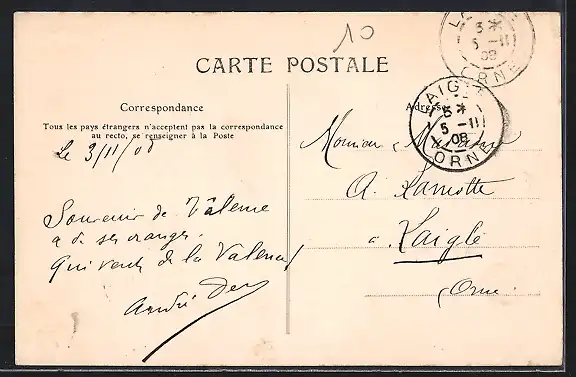 10
CARTE POSTALE
Correspondance
Tous les pays étrangers n'acceptent pas la correspondance
au recto, se renseigner à la Poste
Le 3/11/08
Souvenir de
a de ses oranges.
Qui de la Valence
André
Adresse
LAIGLE
5 -11
08
ORNE
5 -11
08
ORNE
Monsieur
A. Lamotte
a Laigle
Orne